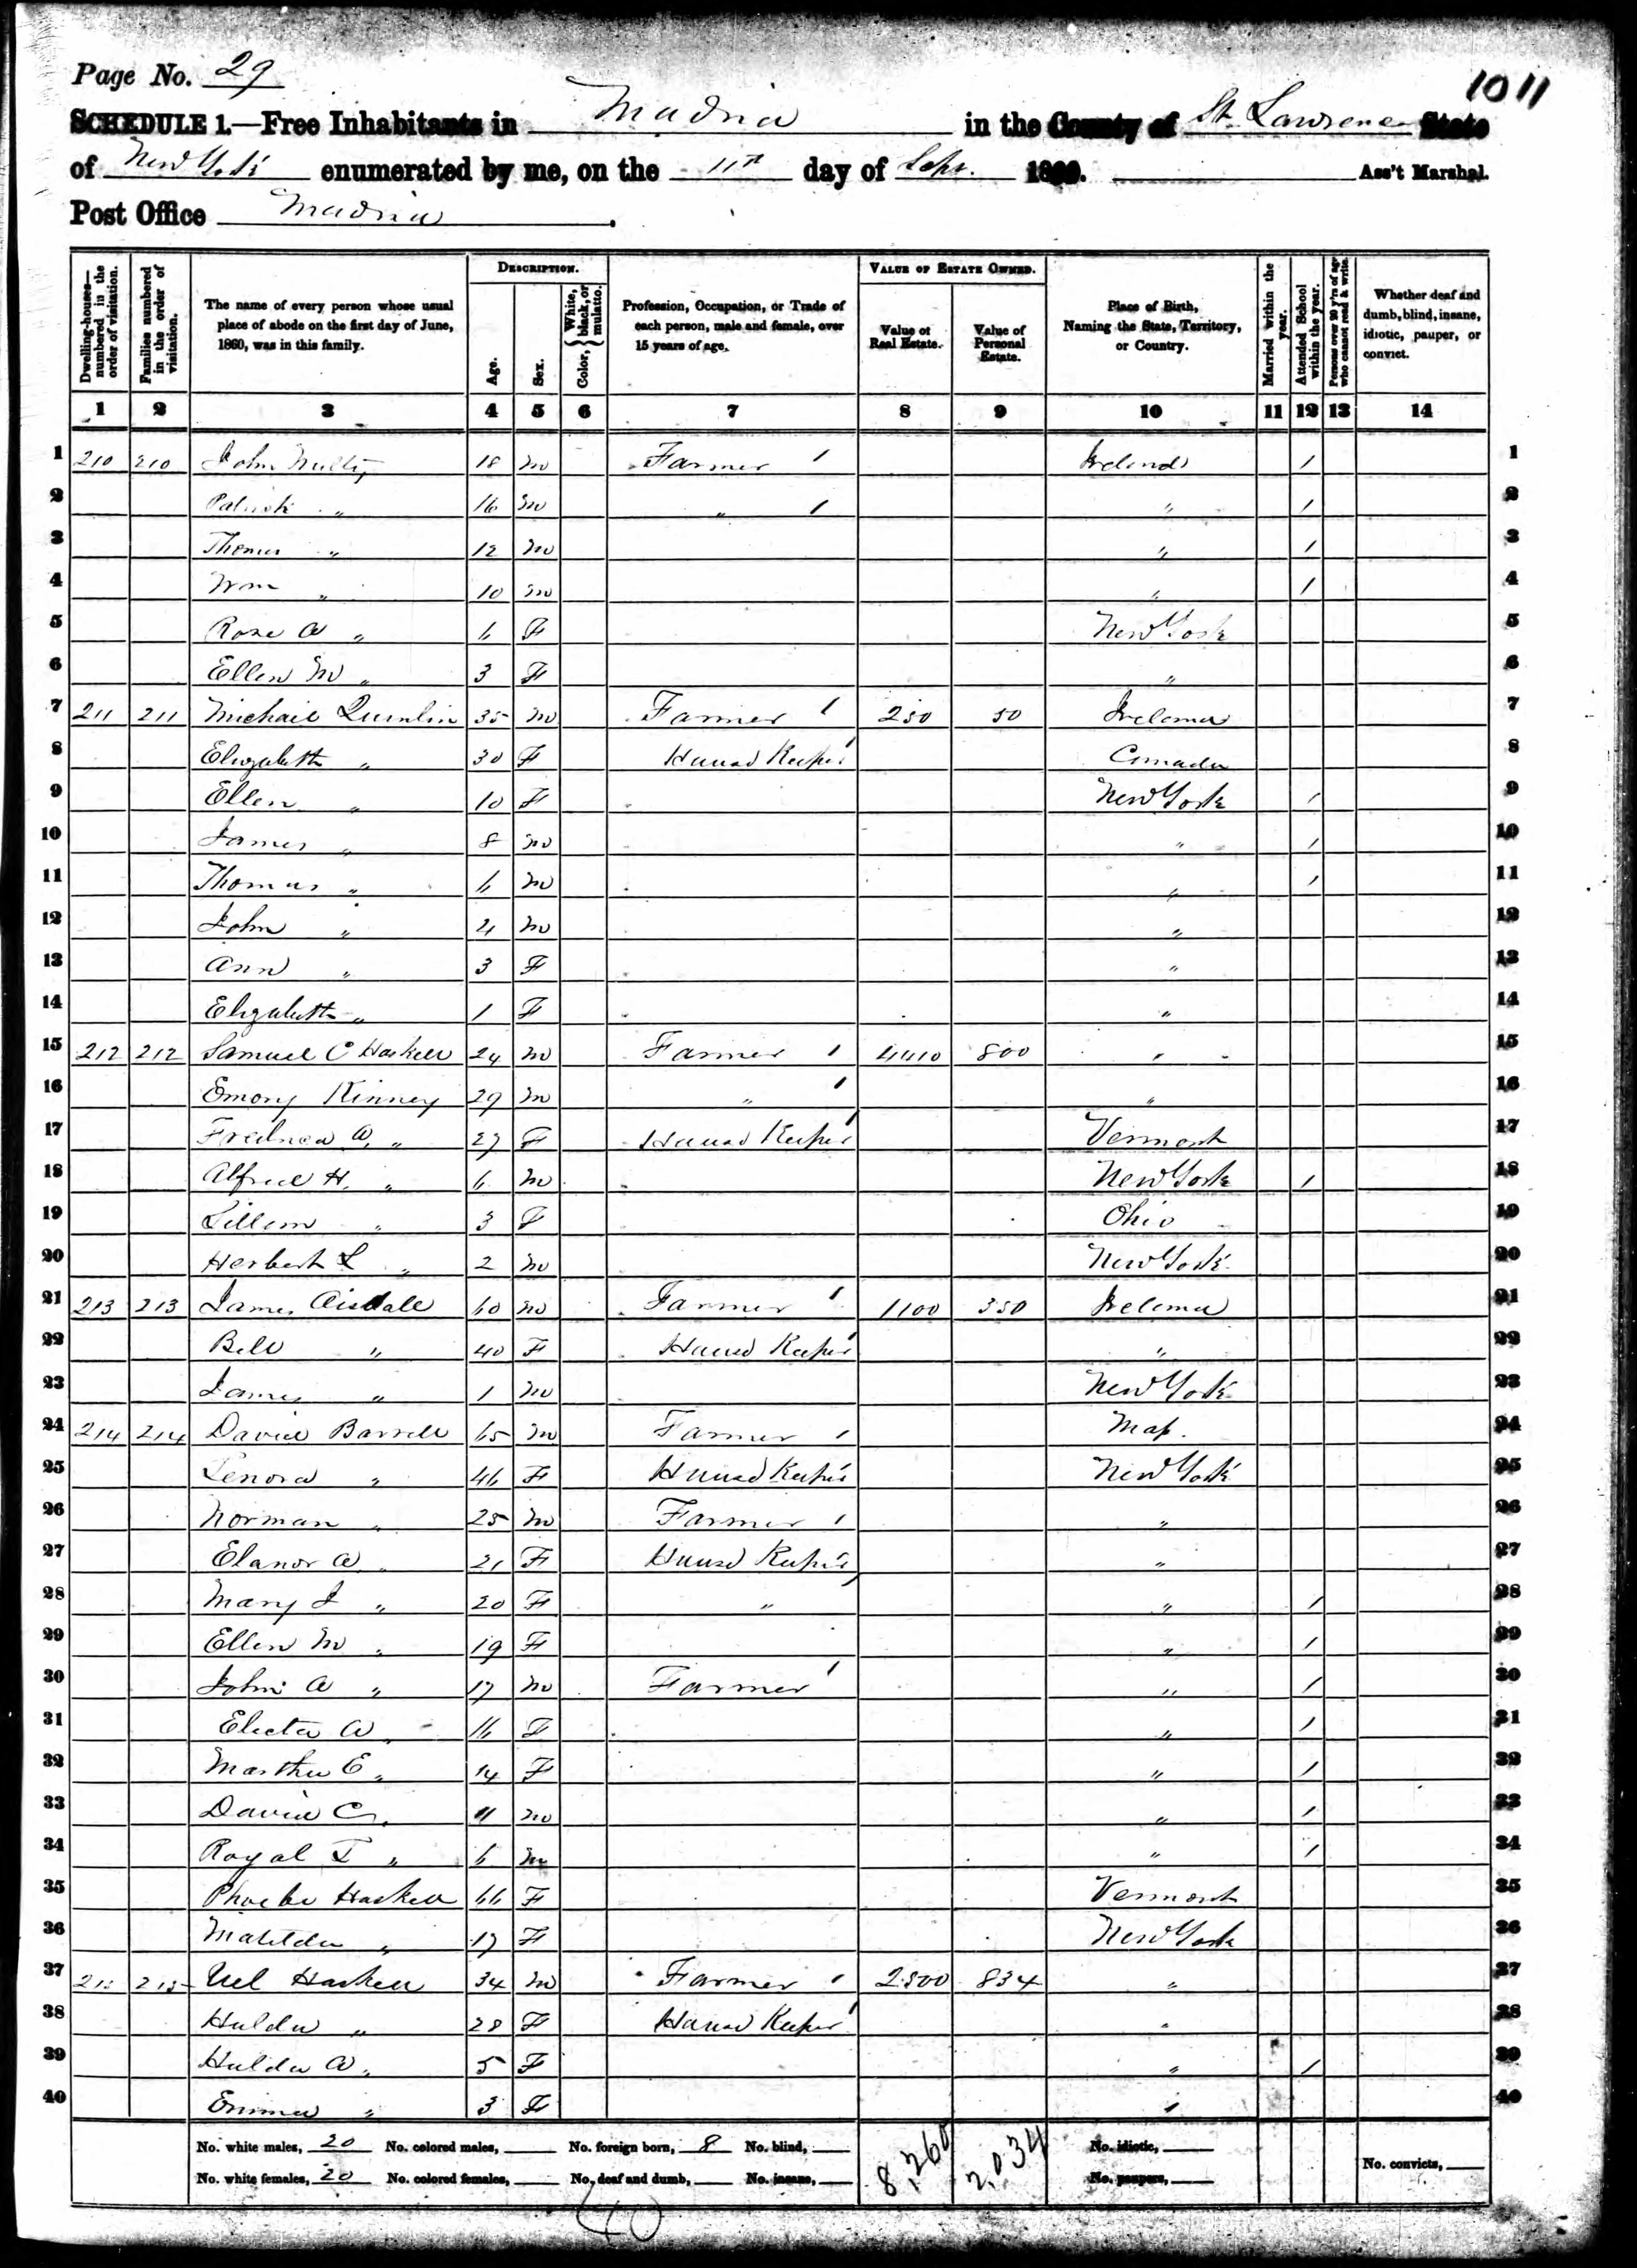 Page No. 29
1011
SCHEDULE 1.—Free Inhabitants in Madrid in the County of St. Lawrence State
of New York enumerated by me, on the 11th day of Sept. 1860. Ass't Marshal.
Post Office Madrid.
Dwelling-houses—numbered in the order of visitation.
Families numbered in the order of visitation.
The name of every person whose usual place of abode on the first day of June, 1860, was in this family.
DESCRIPTION.
Age.
Sex.
Color, { White, black, or mulatto.
Profession, Occupation, or Trade of each person, male and female, over 15 years of age.
VALUE OF ESTATE OWNED.
Value of Real Estate.
Value of Personal Estate.
Place of Birth, Naming the State, Territory, or Country.
Married within the year.
Attended School within the year.
Persons over 20 y'rs of age who cannot read & write.
Whether deaf and dumb, blind, insane, idiotic, pauper, or convict.
1 2 3 4 5 6 7 8 9 10 11 12 13 14
1 210 210 John 18 M Farmer / Ireland / 1
2 Patrick " 16 M " / " / 2
3 Thomas " 12 M " / 3
4 Wm " 10 M " / 4
5 Rose A " 6 F New York 5
6 Ellen M " 3 F " 6
7 211 211 Michael Quinlin 35 M Farmer / 250 50 Ireland 7
8 Elizabeth " 30 F House Keeper / Canada 8
9 Ellen " 10 F New York / 9
10 James " 8 M " / 10
11 Thomas " 6 M " / 11
12 John " 4 M " 12
13 Ann " 3 F " 13
14 Elizabeth " 1 F " 14
15 212 212 Samuel C Haskell 24 M Farmer / 4410 800 " 15
16 Emory Kinney 29 M " / " 16
17 A. " 27 F House Keeper / Vermont 17
18 Alfred H. " 6 M New York / 18
19 " 3 F Ohio 19
20 Herbert L " 2 M New York 20
21 213 213 James 60 M Farmer / 1100 350 Ireland 21
22 Bell " 40 F House Keeper / " 22
23 James " 1 M New York 23
24 214 214 David Barrell 65 M Farmer / Mass. 24
25 Lenora " 46 F House Keeper New York 25
26 Norman " 25 M Farmer / " 26
27 Elanor A " 21 F House Keeper " 27
28 Mary J " 20 F " " / 28
29 Ellen M " 19 F " / 29
30 John A " 17 M Farmer / " / 30
31 Electa A " 16 F " / 31
32 Martha E " 14 F " / 32
33 David C " 11 M " / 33
34 Royal T " 6 M " / 34
35 Phoebe Haskell 66 F Vermont 35
36 Matilda " 17 F New York 36
37 215 215 Uel Haskell 34 M Farmer / 2500 834 " 37
38 Hulda " 28 F House Keeper / " 38
39 Hulda A " 5 F " / 39
40 Emma " 3 F " 40
No. white males, 20 No. colored males, No. foreign born, 8 No. blind, No. idiotic,
No. white females, 20 No. colored females, No. deaf and dumb, No. insane, 8,260 2,034 No. paupers, No. convicts,
40